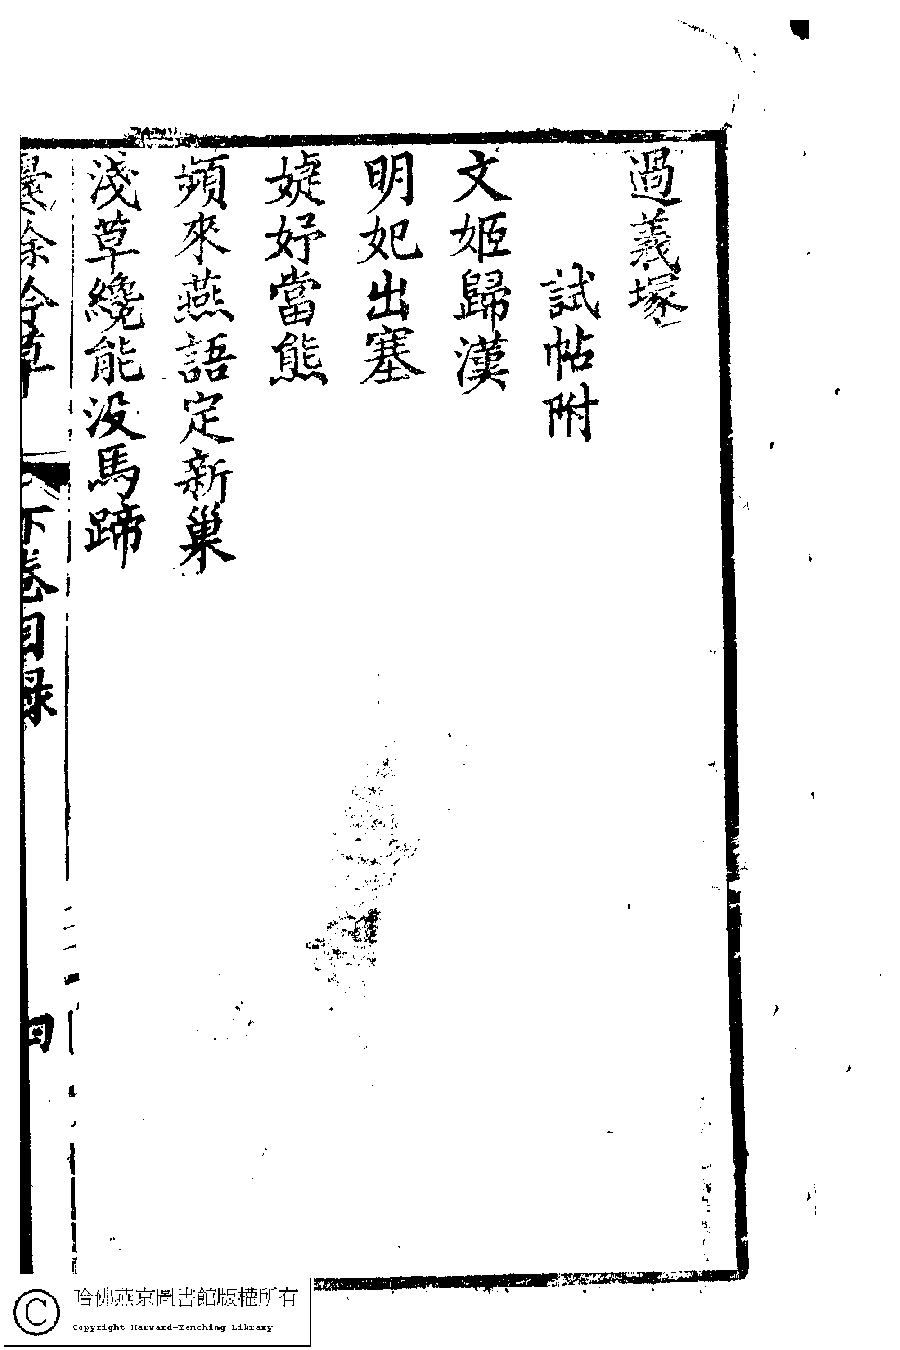 過義塚
試帖附
文姬歸漢
明妃出塞
婕妤當熊
頻來燕語定新巢
淺草纔能没馬蹄
餘吟草
下卷目録
四
哈佛燕京圖書館版權所有
Copyright Harvard-Yenching Library